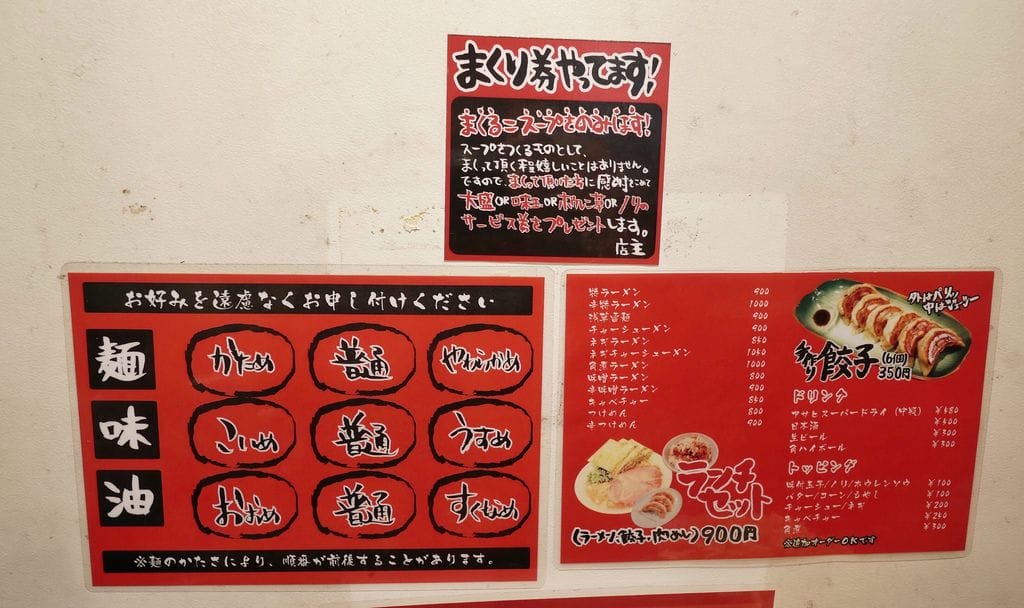 まくり券やってます!
まくるとスープをのみほす!
スープをつくるものとして、
まくって頂く程嬉しいことはありません。
ですので、まくって頂いた方に感謝をこめて
大盛OR味玉ORホウレン草ORノリの
サービス券をプレゼントします。
店主
お好みを遠慮なくお申し付けください
麺 かため 普通 やわらかめ
味 こいめ 普通 うすめ
油 おおめ 普通 すくなめ
※麺のかたさにより、順番が前後することがあります。
特ラーメン 900
辛特ラーメン 1000
浅草香麺 900
チャーシューメン 900
ネギラーメン 850
ネギチャーシューメン 1050
角煮ラーメン 1000
味噌ラーメン 800
辛味噌ラーメン 900
キャベチャー
つけめん 800
辛つけめん 900
ランチ
セット
(ラーメン、餃子、肉めし) 900円
外はパリッ
中はジューシー
餃子 (6個)
350円
ドリンク
アサヒスーパードライ (中瓶) ¥580
日本酒 ¥400
生ビール ¥500
角ハイボール ¥500
トッピング
味付玉子/ノリ/ホウレンソウ ¥100
バター/コーン/もやし ¥100
チャーシュー/ネギ ¥200
キャベチャー ¥250
角煮 ¥300
※追加オーダーOKです